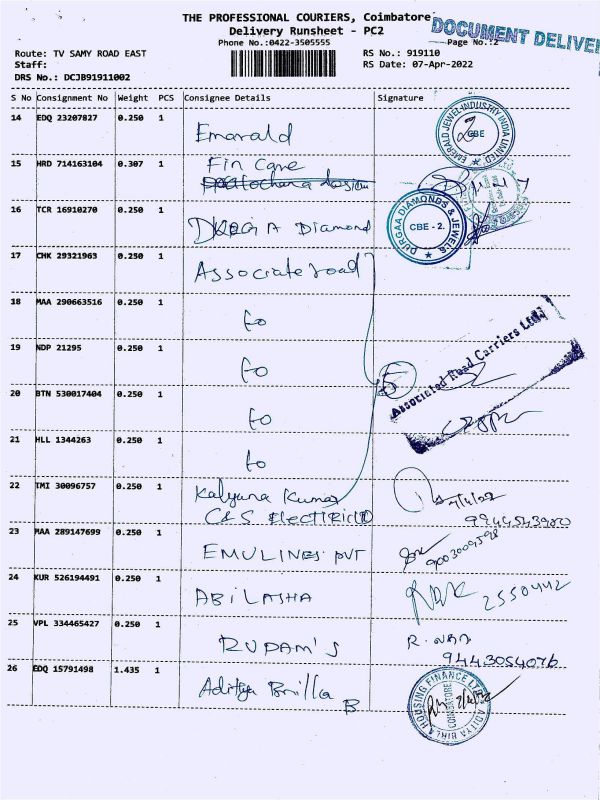 THE PROFESSIONAL COURIERS, Coimbatore
DOCUMENT DELIVER
Delivery Runsheet - PC2
Phone No.:0422-3505555
Page No.:2
Route: TV SAMY ROAD EAST
RS No.: 919110
Staff:
RS Date: 07-Apr-2022
DRS No.: DCJB91911002
S No Consignment No Weight PCS Consignee Details Signature
14 EDQ 23207827 0.250 1
Emerald
EMERALD JEWEL INDUSTRY INDIA LIMITED
CBE
15 HRD 714163104 0.307 1
Fin Care
16 TCR 16910270 0.250 1
Diamond
DURGAA DIAMONDS & JEWELS
CBE - 2.
17 CHK 29321963 0.250 1
Associate road
18 MAA 290663516 0.250 1
to
19 NDP 21295 0.250 1
to
5
Associated Road Carriers Ltd.
20 BTN 530017404 0.250 1
to
21 HLL 1344263 0.250 1
to
22 TMI 30096757 0.250 1
Kalyana Kumar
C&S Electric
7/4/22
23 MAA 289147699 0.250 1
EMULINES PVT
9003009598
24 KUR 526194491 0.250 1
ABILASHA
2550442
25 VPL 334465427 0.250 1
RUPAM'S
9443054076
26 EDQ 15791498 1.435 1
Aditya Brilla
B
ADITYA BIRLA HOUSING FINANCE LTD
COIMBATORE